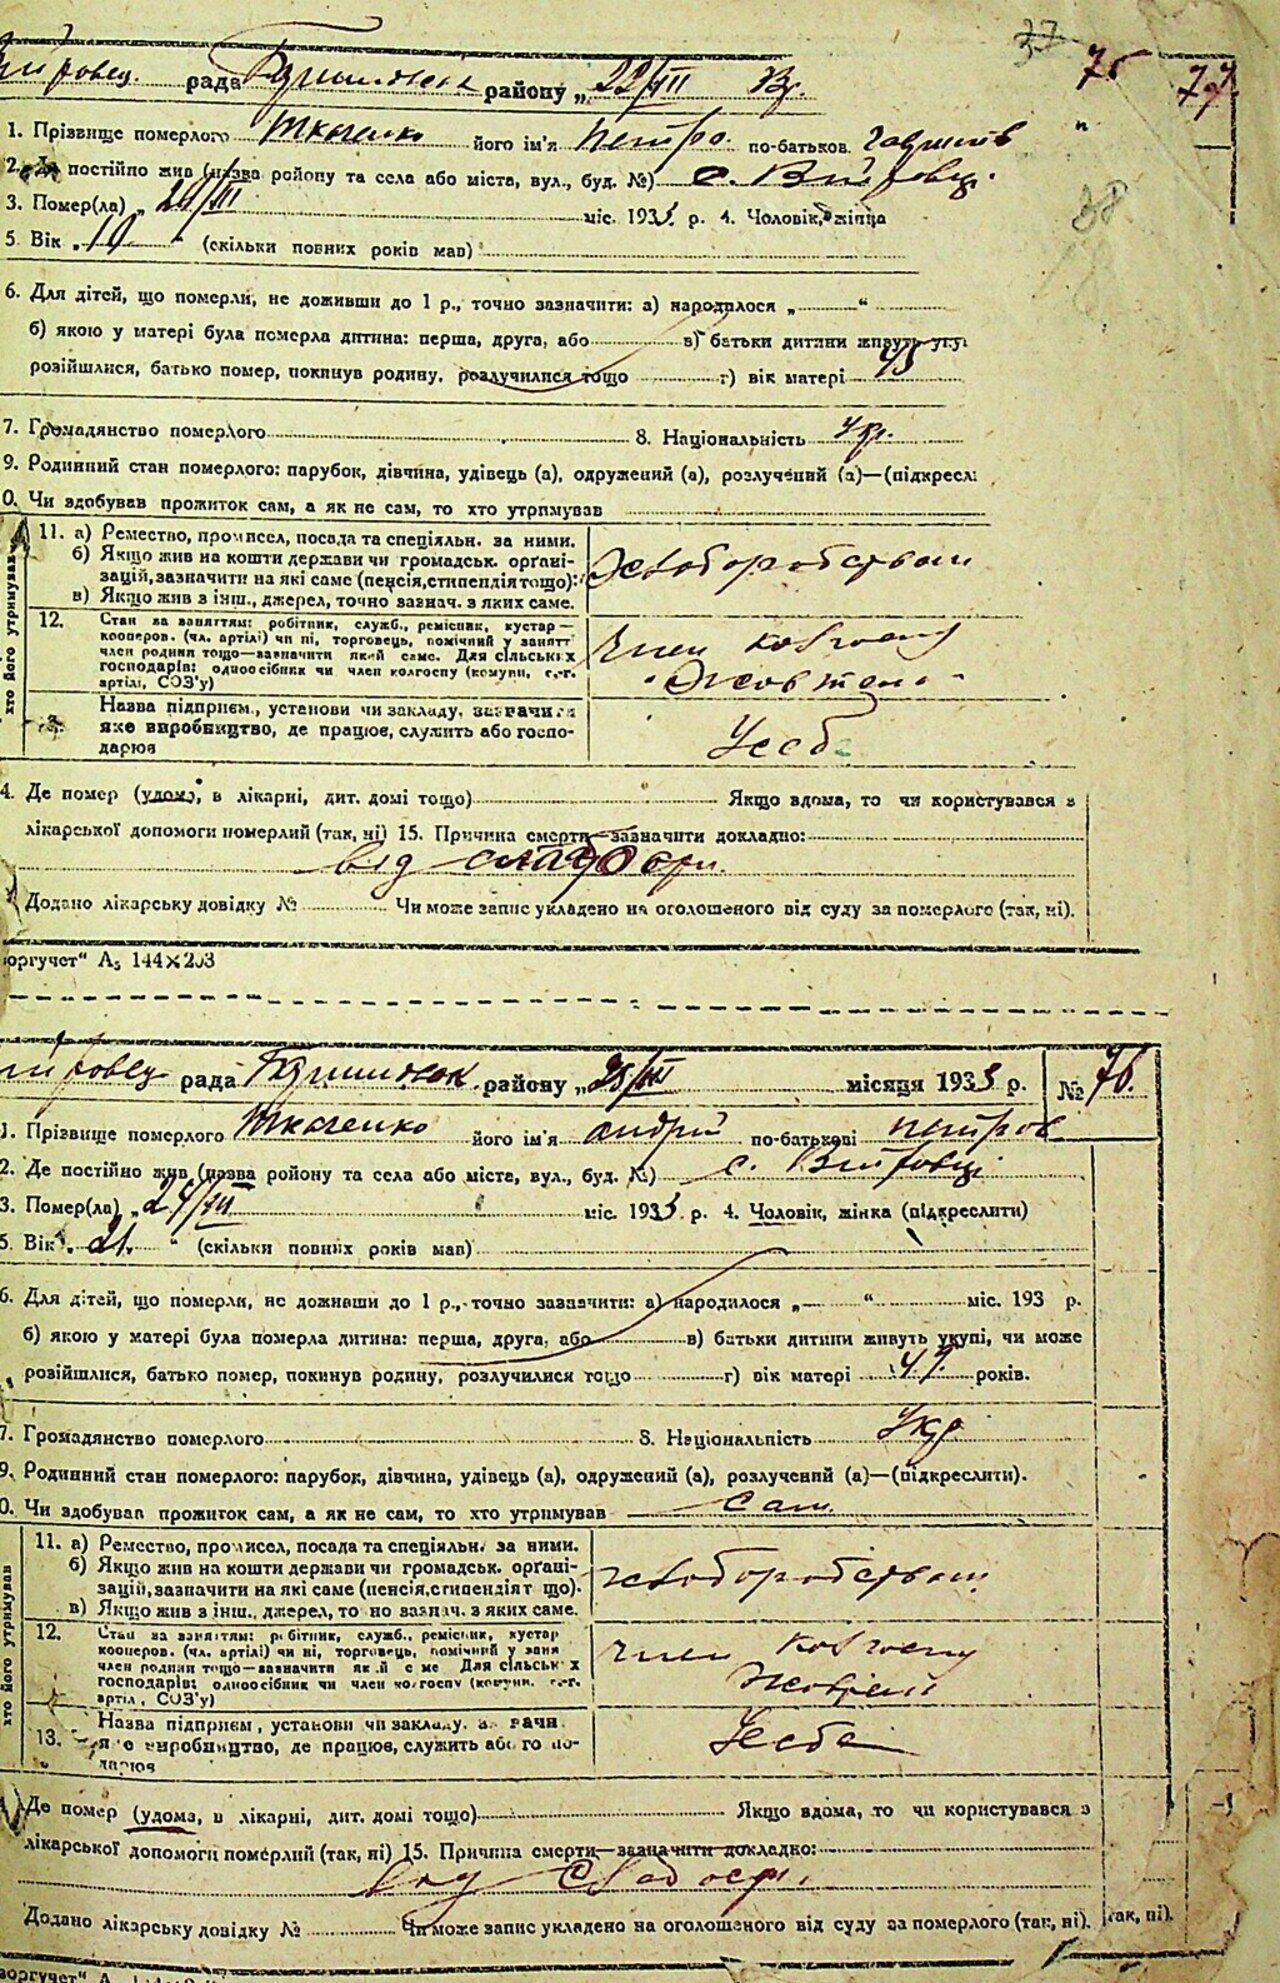 37
75 77
рада районy „22/III 33р.
1. Прізвище померлого Ткаченко його ім'я Петро по-батьков.
2. Де постійно жив (назва ройону та села або міста, вул., буд. №) с.
3. Помер(ла) „ /III міс. 1933 р. 4. Чоловік, жінца
38
5. Вік „ “ (скільки повних років мав)
6. Для дітей, що померли, не доживши до 1 р., точно зазначити: а) народилося „ “
б) якою у матері була померла дитина: перша, друга, або в) батьки дитини живуть уку
розійшлися, батько помер, покинув родину, розлучилися тощо г) вік матері 45
7. Громадянство померлого 8. Національність Укр.
9. Родинний стан померлого: парубок, дівчина, удівець (а), одружений (а), розлучений (а)—(підкресл
0. Чи здобував прожиток сам, а як не сам, то хто утримував
хто його утримував
11. а) Ремество, промисел, посада та спеціяльн. за ними.
б) Якщо жив на кошти держави чи громадськ. орґані-
зацій, зазначити на які саме (пенсія, стипендія тощо):
в) Якщо жив з інш., джерел, точно зазнач. з яких саме.
хлоборобством
12. Стан за заняттям: робітник, служб., ремісник, кустар—
кооперов. (чл. артілі) чи ні, торговець, помічний у занятт
член родини тощо—зазначити який саме. Для сільських
господарів: одноосібник чи член колгоспу (комуни, с.-г.
артілі, СОЗ'у)
член колгоспу
Назва підприєм., установи чи закладу, зазначити
яке виробництво, де працює, служить або госпо-
дарює
4. Де помер (удома, в лікарні, дит. домі тощо) Якщо вдома, то чи користувався з
лікарської допомоги померлий (так, ні) 15. Причина смерти—зазначити докладно:
від слабости.
Додано лікарську довідку № Чи може запис укладено на оголошеного від суду за померлого (так, ні).
оргучет“ А5 144×203
рада районy „28/III місяця 1933 р. № 76.
1. Прізвище померлого Ткаченко його ім'я Андрій по-батькові Петров
2. Де постійно жив (назва ройону та села або міста, вул., буд. №) с.
3. Помер(ла) „24/III міс. 1933 р. 4. Чоловік, жінка (підкреслити)
5. Вік „21. “ (скільки повних років мав)
6. Для дітей, що померли, не доживши до 1 р., точно зазначити: а) народилося „ “ міс. 193 р.
б) якою у матері була померла дитина: перша, друга, або в) батьки дитини живуть укупі, чи може
розійшлися, батько помер, покинув родину, розлучилися тощо г) вік матері 49 років.
7. Громадянство померлого 8. Національність Укр
9. Родинний стан померлого: парубок, дівчина, удівець (а), одружений (а), розлучений (а)—(підкреслити).
0. Чи здобував прожиток сам, а як не сам, то хто утримував сам.
хто його утримував
11. а) Ремество, промисел, посада та спеціяльн. за ними.
б) Якщо жив на кошти держави чи громадськ. орґані-
зацій, зазначити на які саме (пенсія, стипендія т що).
в) Якщо жив з інш., джерел, то но зазнач. з яких саме.
хлоборобством
12. Стан за заняттям: р бітник, служб., ремісник, кустар
кооперов. (чл. артілі) чи ні, торговець, помічний у заня
член родини тощо—зазначити як й с ме Для сільськ х
господарів: одноосібник чи член колгоспу (комуни, с.-г.
артіл , СОЗ'у)
член колгоспу
13. Назва підприєм, установи чи закладу, за начи
я е виробництво, де працює, служить або го по-
дарює
Де помер (удома, в лікарні, дит. домі тощо) Якщо вдома, то чи користувався з
лікарської допомоги померлий (так, ні) 15. Причина смерти—зазначити докладно:
від слабости.
Додано лікарську довідку № Чи може запис укладено на оголошеного від суду за померлого (так, ні). так, ні).
воргучет“ А